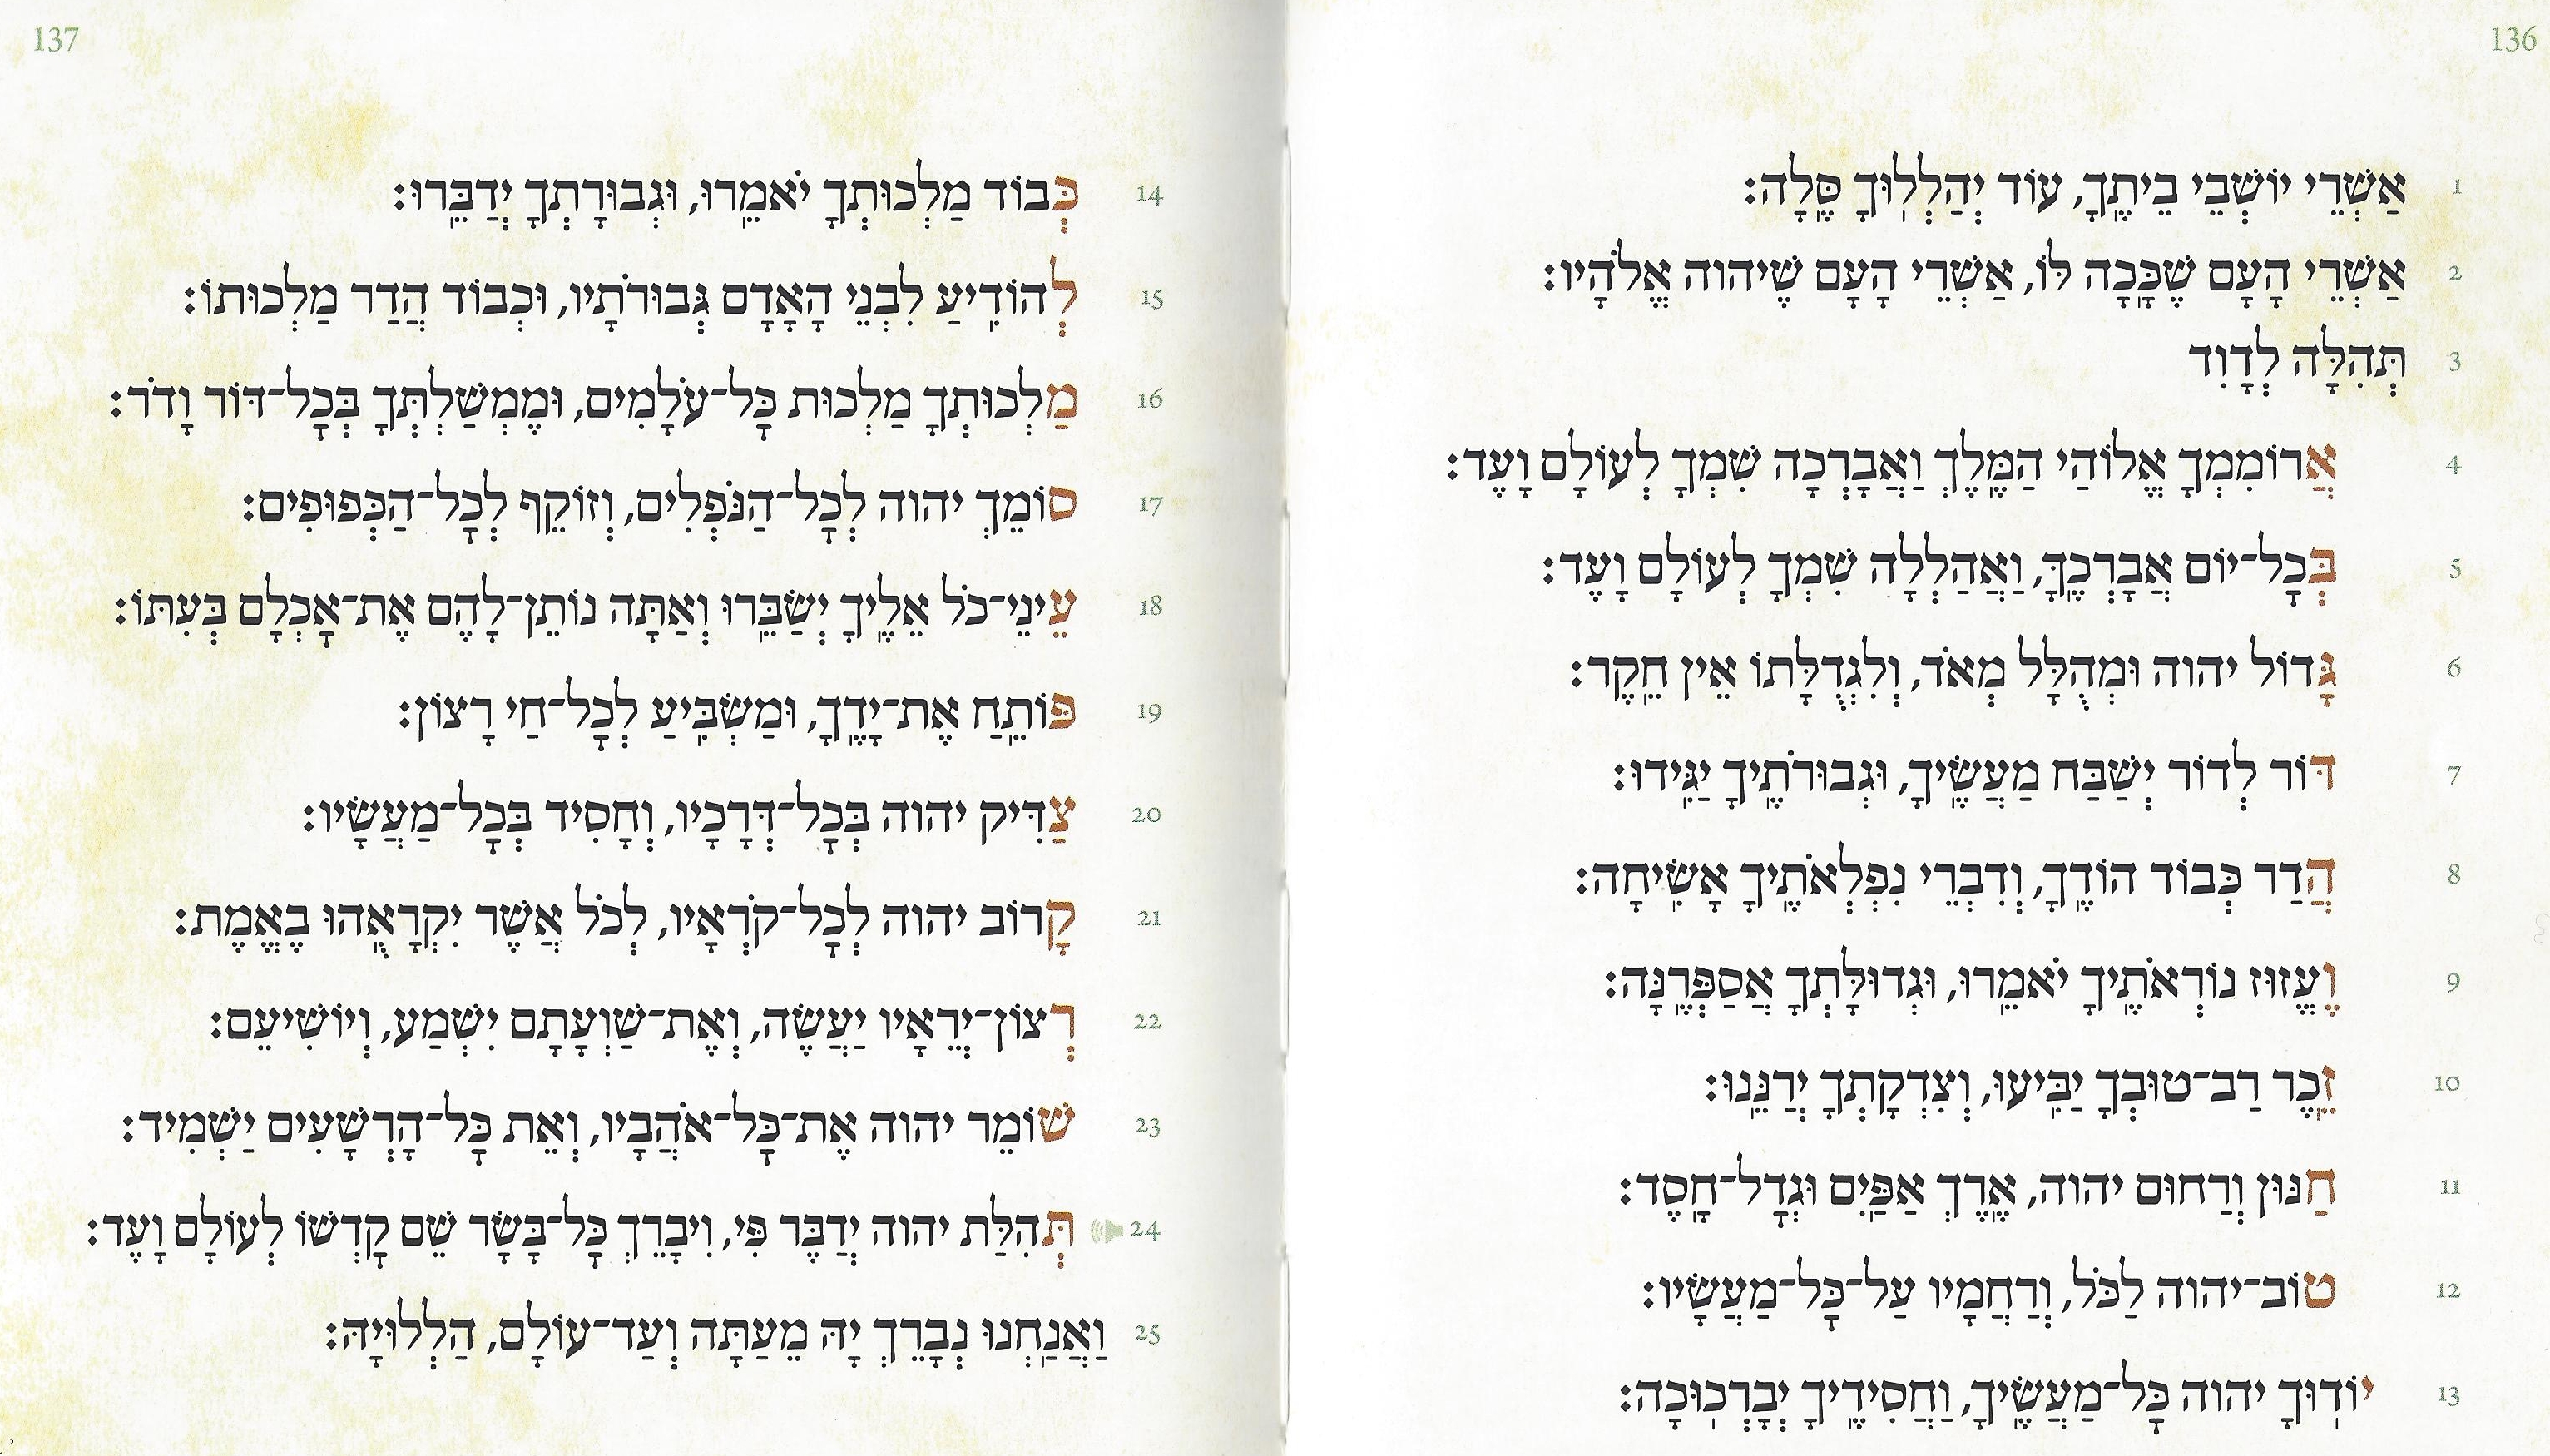 136
1 אַשְׁרֵי יוֹשְׁבֵי בֵיתֶךָ, עוֹד יְהַלְלוּךָ סֶּלָה:
2 אַשְׁרֵי הָעָם שֶׁכָּכָה לּוֹ, אַשְׁרֵי הָעָם שֶׁיהוה אֱלֹהָיו:
3 תְּהִלָּה לְדָוִד
4 אֲרוֹמִמְךָ אֱלוֹהַי הַמֶּלֶךְ וַאֲבָרְכָה שִׁמְךָ לְעוֹלָם וָעֶד:
5 בְּכָל־יוֹם אֲבָרְכֶךָּ, וַאֲהַלְלָה שִׁמְךָ לְעוֹלָם וָעֶד:
6 גָּדוֹל יהוה וּמְהֻלָּל מְאֹד, וְלִגְדֻלָּתוֹ אֵין חֵקֶר:
7 דּוֹר לְדוֹר יְשַׁבַּח מַעֲשֶׂיךָ, וּגְבוּרֹתֶיךָ יַגִּידוּ:
8 הֲדַר כְּבוֹד הוֹדֶךָ, וְדִבְרֵי נִפְלְאֹתֶיךָ אָשִׂיחָה:
9 וֶעֱזוּז נוֹרְאֹתֶיךָ יֹאמֵרוּ, וּגְדוּלָּתְךָ אֲסַפְּרֶנָּה:
10 זֵכֶר רַב־טוּבְךָ יַבִּיעוּ, וְצִדְקָתְךָ יְרַנֵּנוּ:
11 חַנּוּן וְרַחוּם יהוה, אֶרֶךְ אַפַּיִם וּגְדָל־חָסֶד:
12 טוֹב־יהוה לַכֹּל, וְרַחֲמָיו עַל־כָּל־מַעֲשָׂיו:
13 יוֹדוּךָ יהוה כָּל־מַעֲשֶׂיךָ, וַחֲסִידֶיךָ יְבָרְכוּכָה:
137
14 כְּבוֹד מַלְכוּתְךָ יֹאמֵרוּ, וּגְבוּרָתְךָ יְדַבֵּרוּ:
15 לְהוֹדִיעַ לִבְנֵי הָאָדָם גְּבוּרֹתָיו, וּכְבוֹד הֲדַר מַלְכוּתוֹ:
16 מַלְכוּתְךָ מַלְכוּת כָּל־עֹלָמִים, וּמֶמְשַׁלְתְּךָ בְּכָל־דּוֹר וָדֹר:
17 סוֹמֵךְ יהוה לְכָל־הַנֹּפְלִים, וְזוֹקֵף לְכָל־הַכְּפוּפִים:
18 עֵינֵי־כֹל אֵלֶיךָ יְשַׂבֵּרוּ וְאַתָּה נוֹתֵן־לָהֶם אֶת־אָכְלָם בְּעִתּוֹ:
19 פּוֹתֵחַ אֶת־יָדֶךָ, וּמַשְׂבִּיעַ לְכָל־חַי רָצוֹן:
20 צַדִּיק יהוה בְּכָל־דְּרָכָיו, וְחָסִיד בְּכָל־מַעֲשָׂיו:
21 קָרוֹב יהוה לְכָל־קֹרְאָיו, לְכֹל אֲשֶׁר יִקְרָאֻהוּ בֶאֱמֶת:
22 רְצוֹן־יְרֵאָיו יַעֲשֶׂה, וְאֶת־שַׁוְעָתָם יִשְׁמַע, וְיוֹשִׁיעֵם:
23 שׁוֹמֵר יהוה אֶת־כָּל־אֹהֲבָיו, וְאֵת כָּל־הָרְשָׁעִים יַשְׁמִיד:
24 תְּהִלַּת יהוה יְדַבֶּר פִּי, וִיבָרֵךְ כָּל־בָּשָׂר שֵׁם קָדְשׁוֹ לְעוֹלָם וָעֶד:
25 וַאֲנַחְנוּ נְבָרֵךְ יָהּ מֵעַתָּה וְעַד־עוֹלָם, הַלְלוּיָהּ: